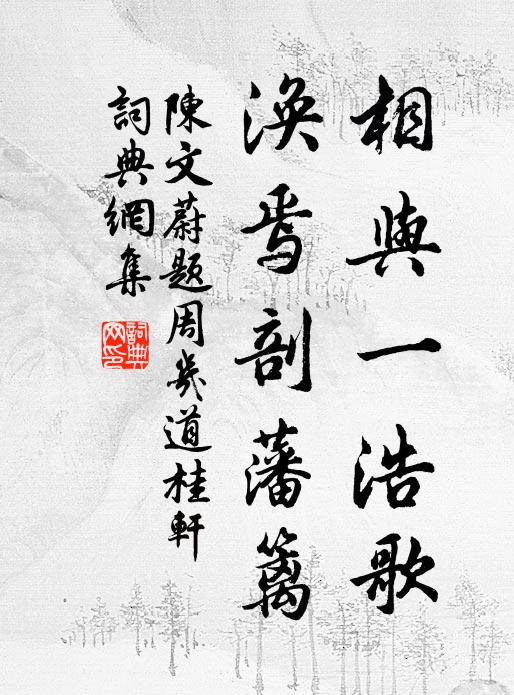 相與一浩歌
渙焉剖藩籬
陳文蔚題周幾道桂軒
詞典網集
詞典
网印